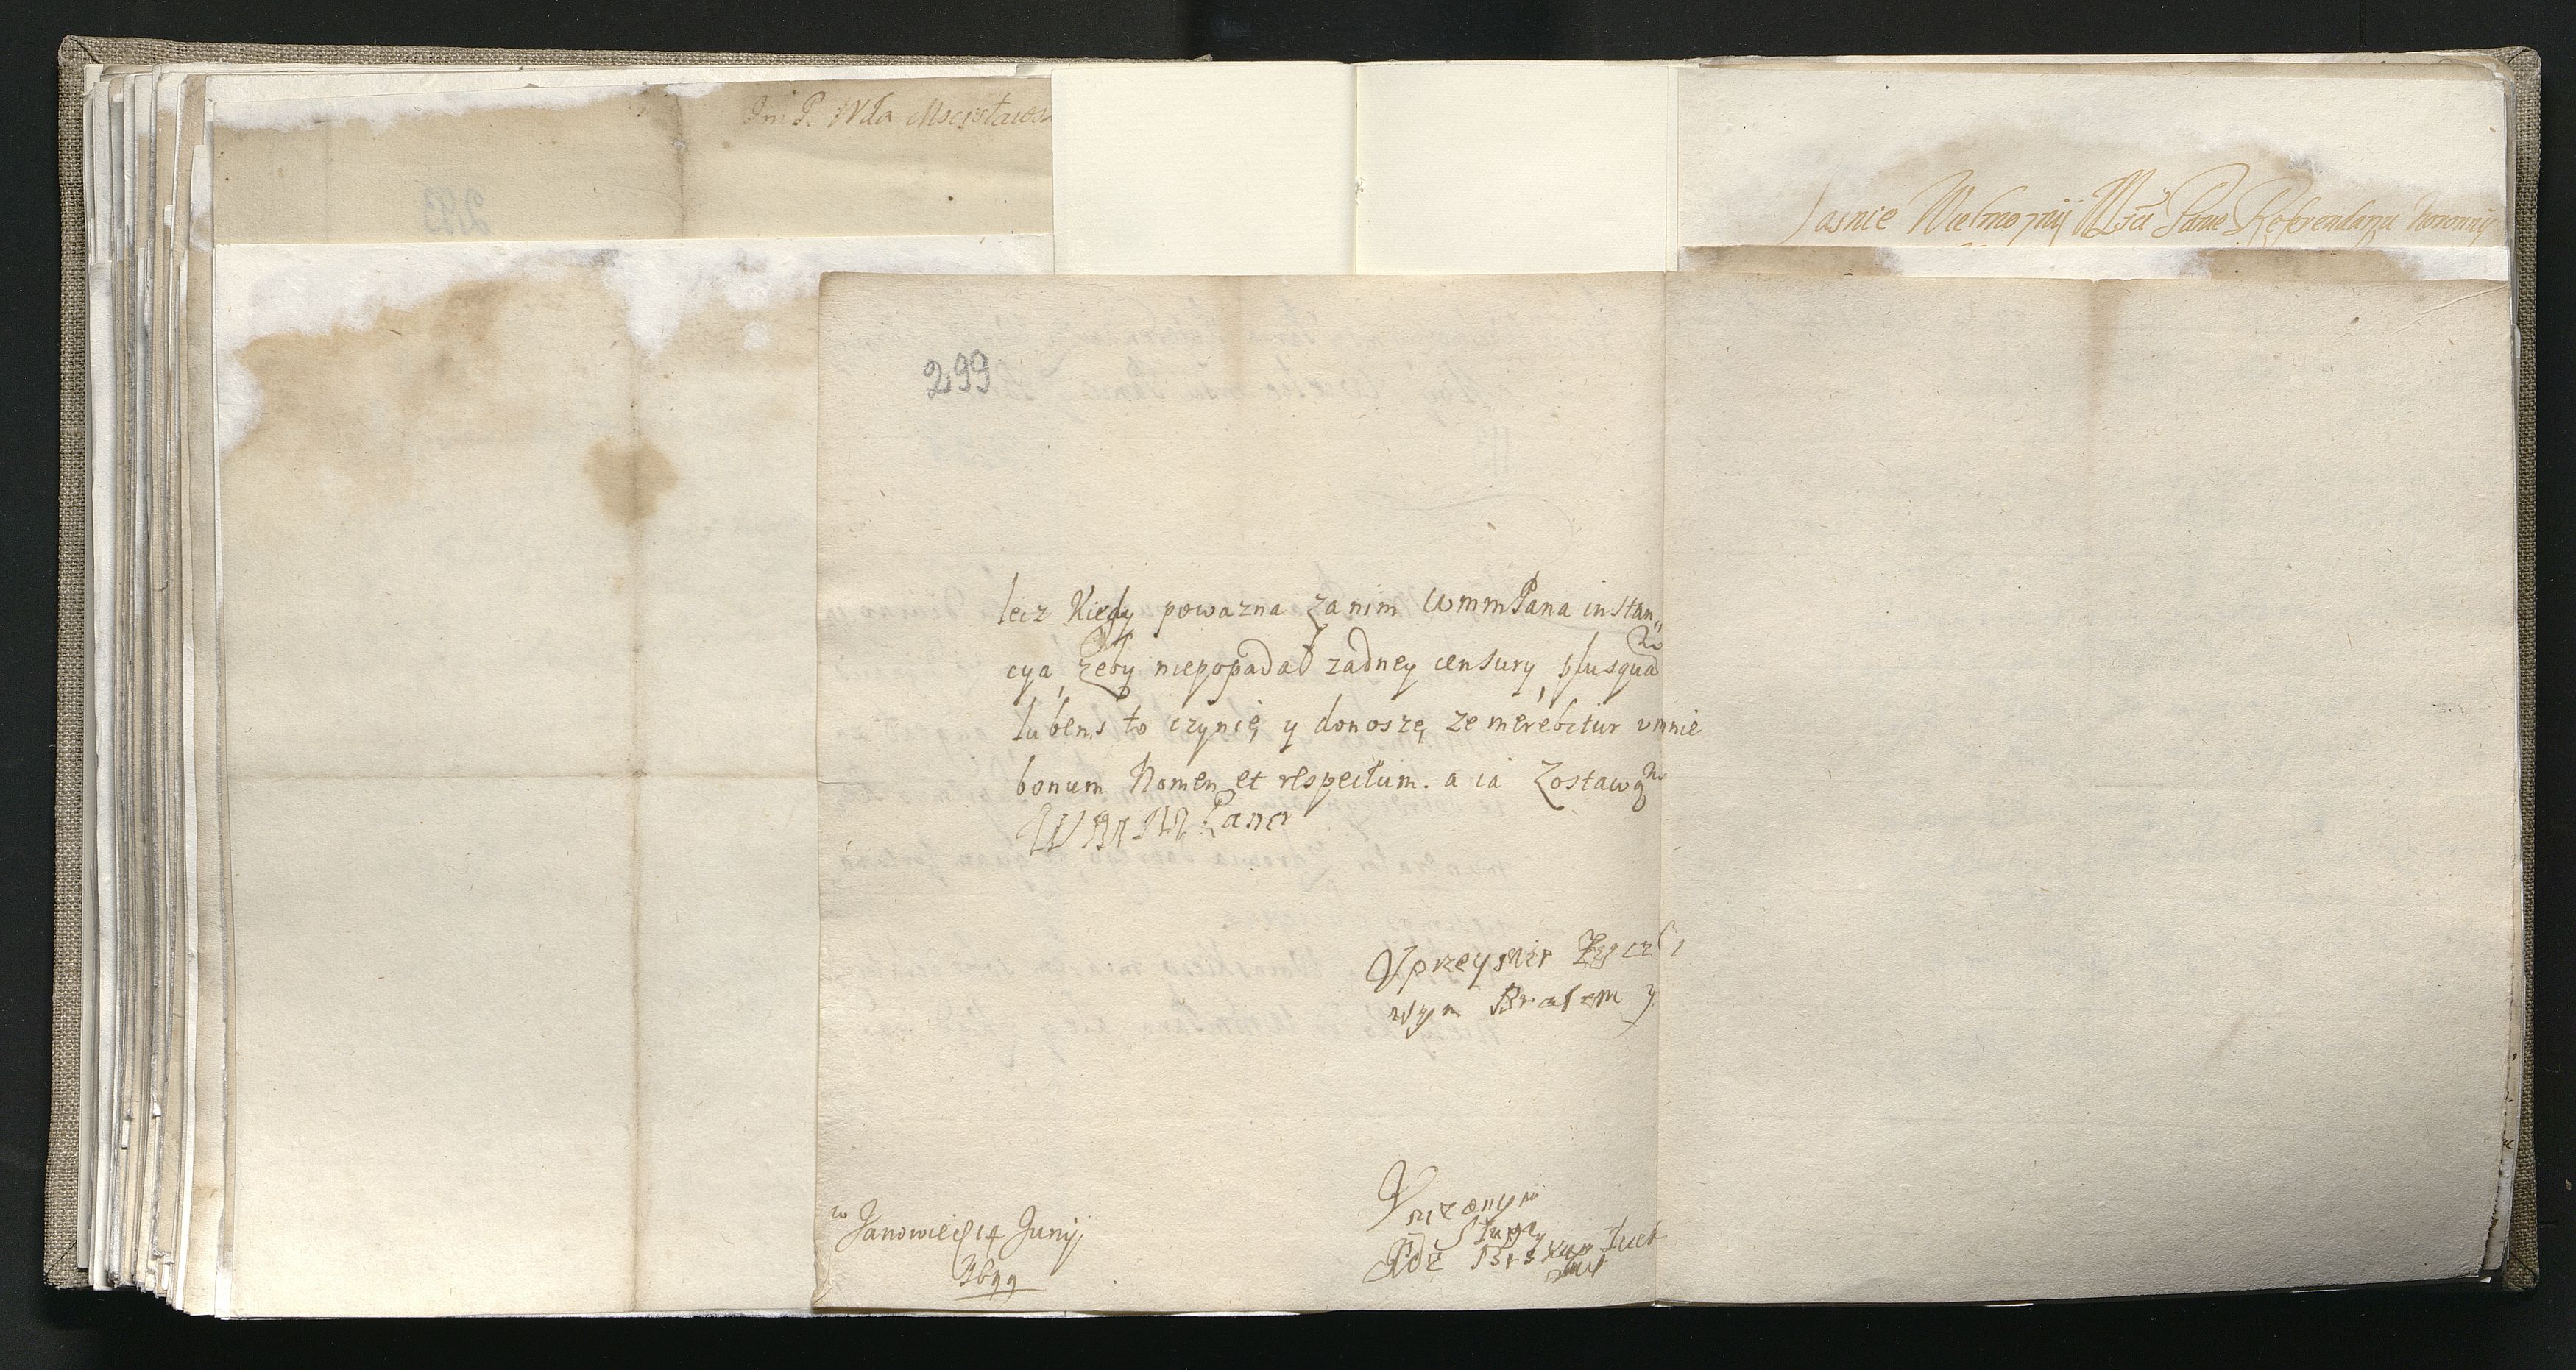 Im P. Wda Mscisławs
293
Jasnie Wielmozny Msci Panie Referendarzu Koronny
299
lecz Kiedy powazna zanim WmmPana instan„
cya, zeby niepopadał zadney censury, plusquã
lubens to czynię y donoszę ze merebitur umnie
bonum Nomen et respectum. a ia Zostawam
WMMPana
Vprzeymie Zyczli
wym Bratem y
Sługą
w Janowie 14 Junij
1699